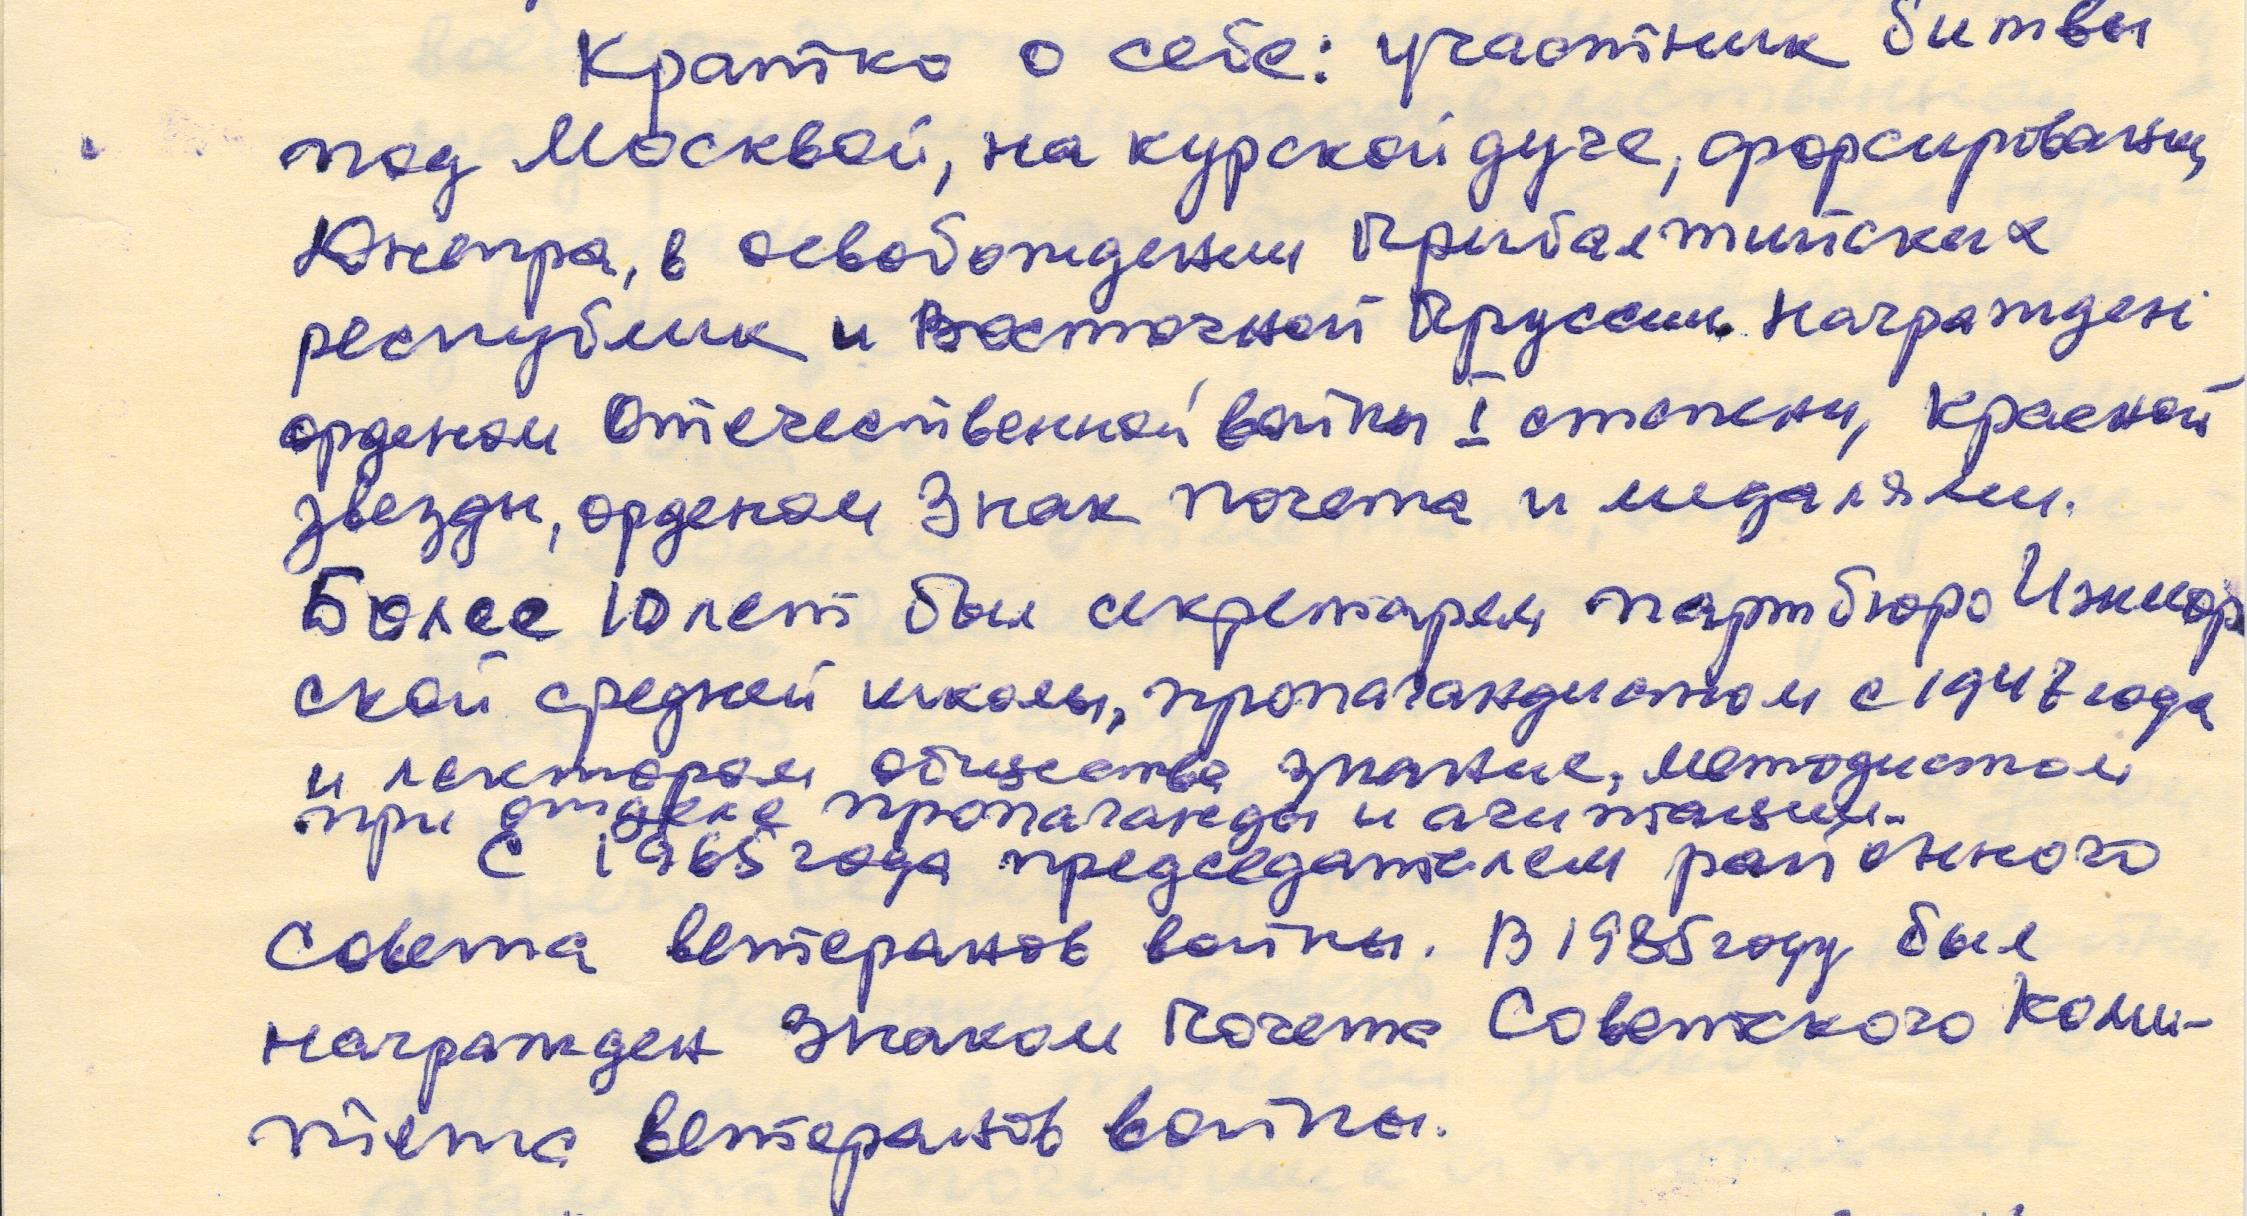 Кратко о себе: участник битвы
под Москвой, на курской дуге, форсировании
Днепра, в освобождении Прибалтийских
республик и Восточной Пруссии. Награжден
орденом Отечественной войны I степени, Красной
звезды, орденом Знак почета и медалями.
Более 10 лет был секретарем партбюро Ижмор
ской средней школы, пропагандистом с 1947 года
и лектором общества знание, методистом
при отделе пропаганды и агитации.
С 1965 года председателем районного
Совета ветеранов войны. В 1985 году был
награжден Знаком Почета Советского Коми-
тета ветеранов войны.